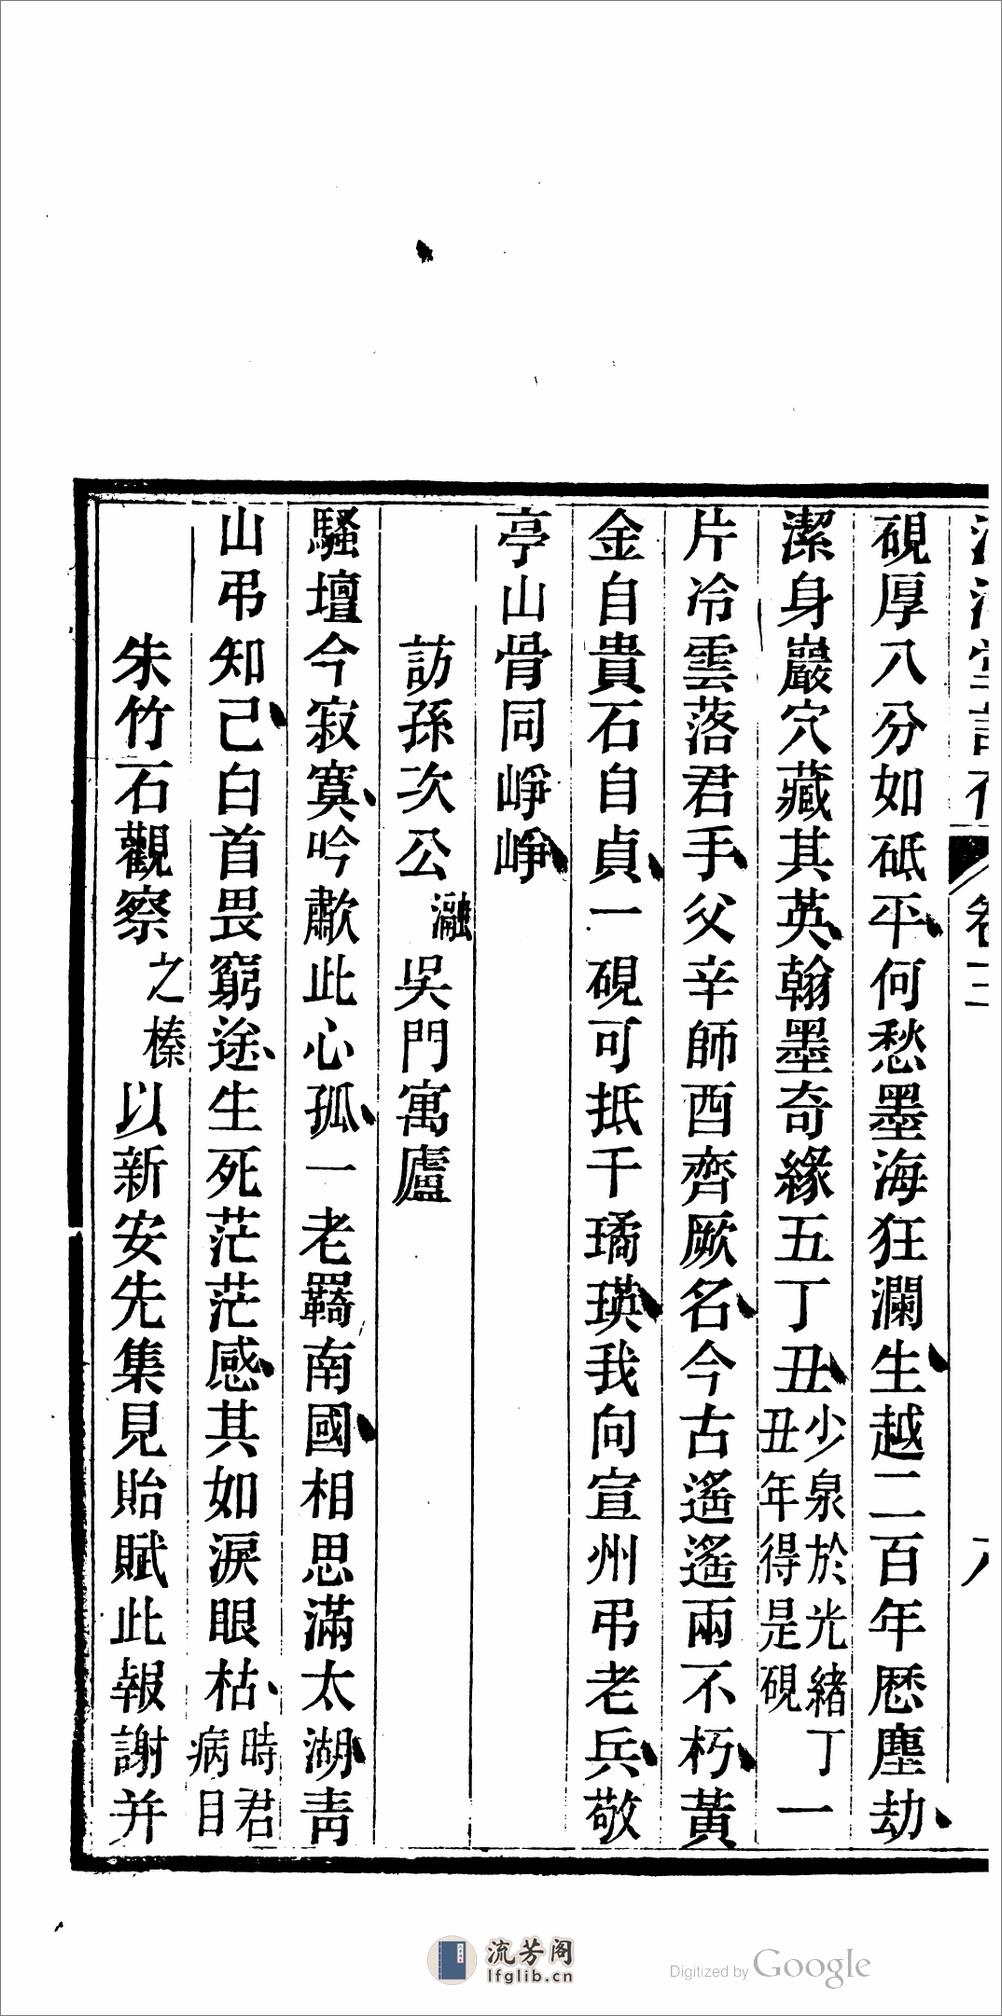 卷三
硯厚八分如砥平何愁墨海狂瀾生越二百年歷塵劫
潔身巖穴藏其英翰墨奇緣五丁丑少泉於光緒丁丑年得是硯一
片冷雲落君手父辛師酉齊厥名今古遙遙兩不朽黃
金自貴石自貞一硯可抵千璚瑛我向宣州弔老兵敬
亭山骨同崢崢
訪孫次公瀜吳門寓廬
騷壇今寂寞吟歗此心孤一老羇南國相思滿太湖青
山弔知己白首畏窮途生死茫茫感其如淚眼枯時君病目
朱竹石觀察之榛以新安先集見貽賦此報謝并
流芳阁
lfglib.cn
Digitized by Google